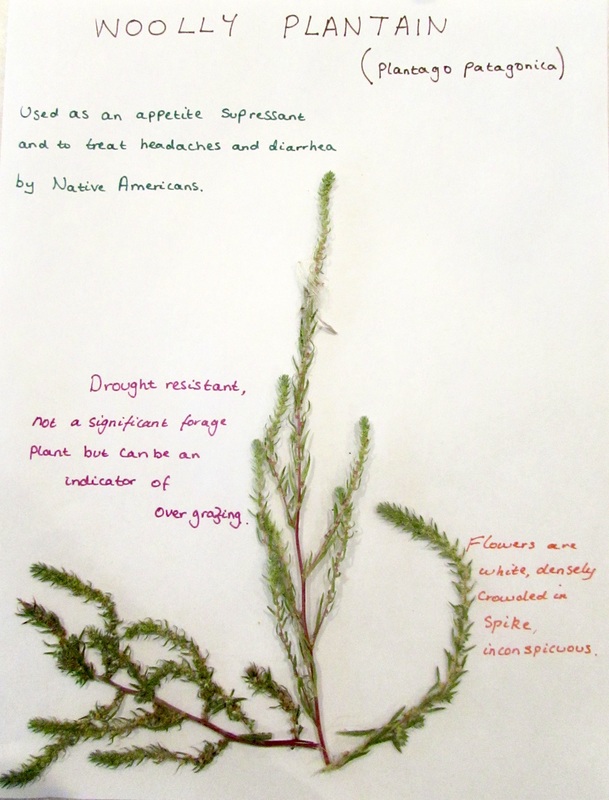 WOOLLY PLANTAIN
(Plantago patagonica)
Used as an appetite supressant
and to treat headaches and diarrhea
by Native Americans.
Drought resistant,
not a significant forage
plant but can be an
indicator of
over grazing.
Flowers are
white, densely
crowded in
spike,
inconspicuous.